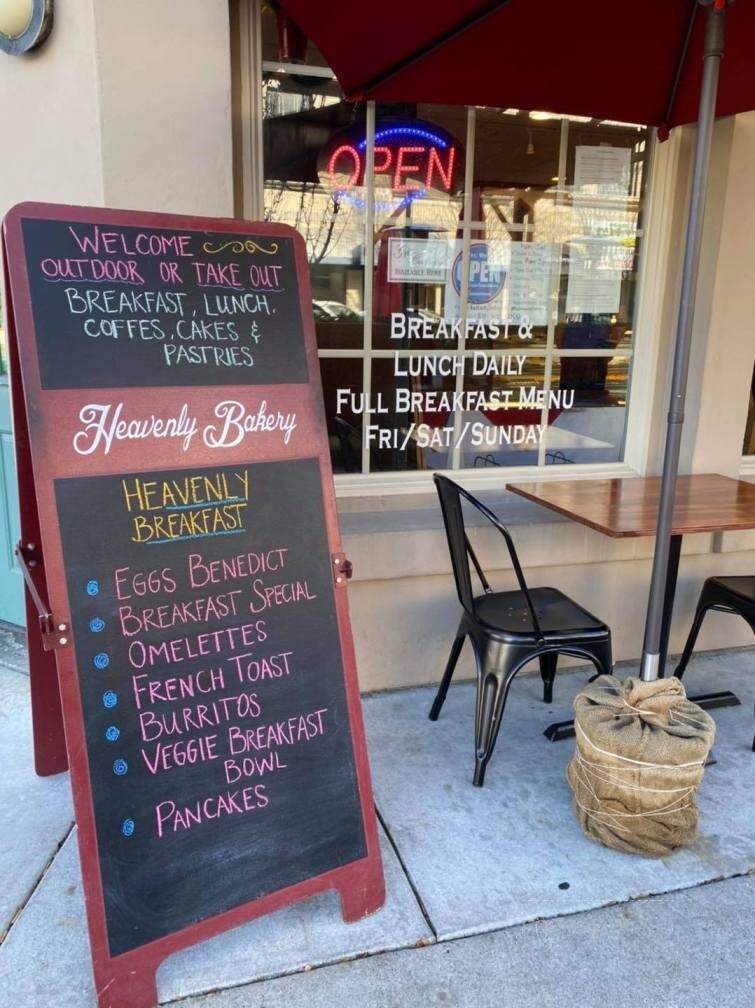 WELCOME
OUTDOOR OR TAKE OUT
BREAKFAST, LUNCH.
COFFES, CAKES &
PASTRIES
Heavenly Bakery
HEAVENLY
BREAKFAST
EGGS BENEDICT
BREAKFAST SPECIAL
OMELETTES
FRENCH TOAST
BURRITOS
VEGGIE BREAKFAST
BOWL
PANCAKES
OPEN
AVAILABLE HERE
OPEN
BREAKFAST &
LUNCH DAILY
FULL BREAKFAST MENU
FRI/SAT/SUNDAY